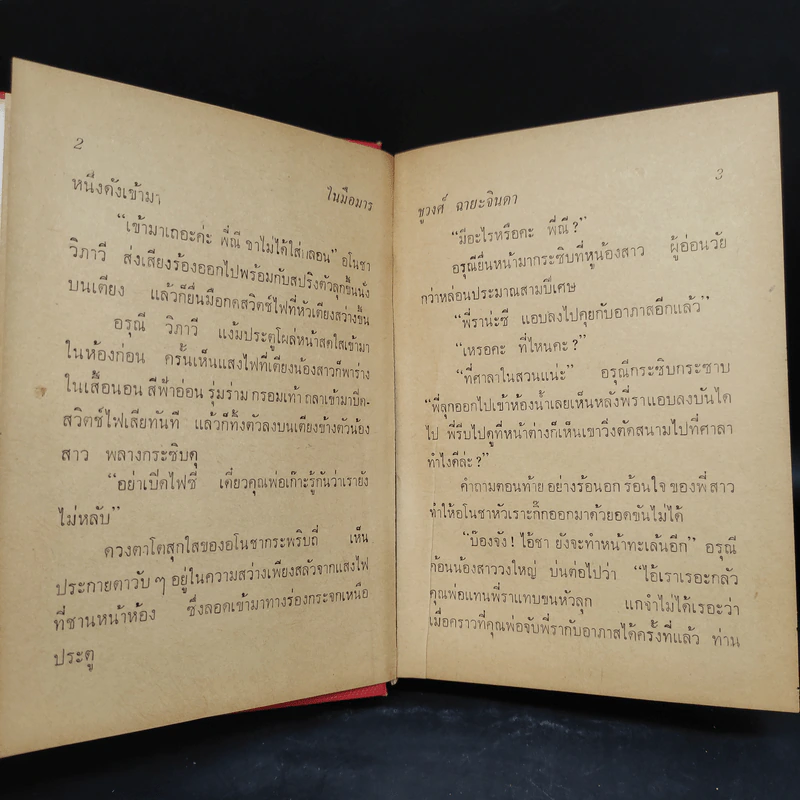 2
ในมือมาร
หนึ่งดังเข้ามา
“เข้ามาเถอะค่ะ พี่ณี ชาไม่ได้ใส่กลอน” อโนชา
วิภาวี ส่งเสียงร้องออกไปพร้อมกับสปริงตัวลุกขึ้นนั่ง
บนเตียง แล้วก็ยื่นมือกดสวิตช์ไฟที่หัวเตียงสว่างขึ้น
อรุณี วิภาวี แง้มประตูโผล่หน้าสดใสเข้ามา
ในห้องก่อน ครั้นเห็นแสงไฟที่เตียงน้องสาวก็พาร่าง
ในเสื้อนอน สีฟ้าอ่อน รุ่มร่าม กรอมเท้า ถลาเข้ามาปิด-
สวิตช์ไฟเสียทันที แล้วก็ทิ้งตัวลงบนเตียงข้างตัวน้อง
สาว พลางกระซิบดุ
“อย่าเปิดไฟซี่ เดี๋ยวคุณพ่อเก๊าะรู้กันว่าเรายัง
ไม่หลับ”
ดวงตาโตสุกใสของอโนชากระพริบถี่ เห็น
ประกายตาวับ ๆ อยู่ในความสว่างเพียงสลัวจากแสงไฟ
ที่ชานหน้าห้อง ซึ่งลอดเข้ามาทางร่องกระจกเหนือ
ประตู
3
ชูวงศ์ ฉายะจินดา
“มีอะไรหรือคะ พี่ณี?”
อรุณียื่นหน้ามากระซิบที่หูน้องสาว ผู้อ่อนวัย
กว่าหล่อนประมาณสามปีเศษ
“พี่ราน่ะซี แอบลงไปคุยกับอาภาสอีกแล้ว”
“เหรอคะ ที่ไหนคะ?”
“ที่ศาลาในสวนแน่ะ” อรุณีกระซิบกระซาบ
“พี่ลุกออกไปเข้าห้องน้ำเลยเห็นหลังพี่ราแอบลงบันได
ไป พี่รีบไปดูที่หน้าต่างก็เห็นเขาวิ่งตัดสนามไปที่ศาลา
ทำไงดีล่ะ?”
คำถามตอนท้าย อย่างร้อนอก ร้อนใจ ของ พี่ สาว
ทำให้อโนชาหัวเราะกิ๊กออกมาด้วยอดขันไม่ได้
“บ๊องจัง! ไอ้ชา ยังจะทำหน้าทะเล้นอีก” อรุณี
ค้อนน้องสาววงใหญ่ บ่นต่อไปว่า “ไอ้เราเรอะกลัว
คุณพ่อแทนพี่ราแทบขนหัวลุก แกจำไม่ได้เรอะว่า
เมื่อคราวที่คุณพ่อจับพี่รากับอาภาสได้ครั้งที่แล้ว ท่าน